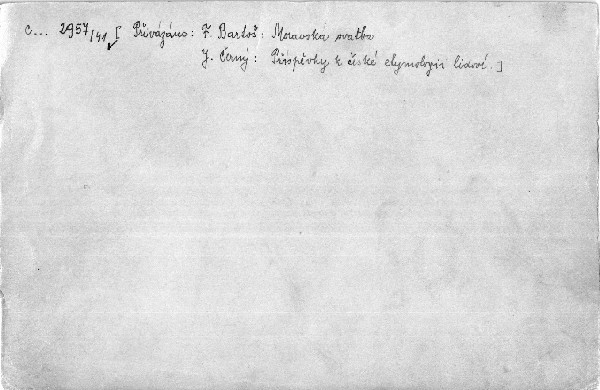 C... 2957/41 [ Přivázáno: F. Bartoš: Moravská svatba
J. Černý: Příspěvky k české etymologii lidové.]